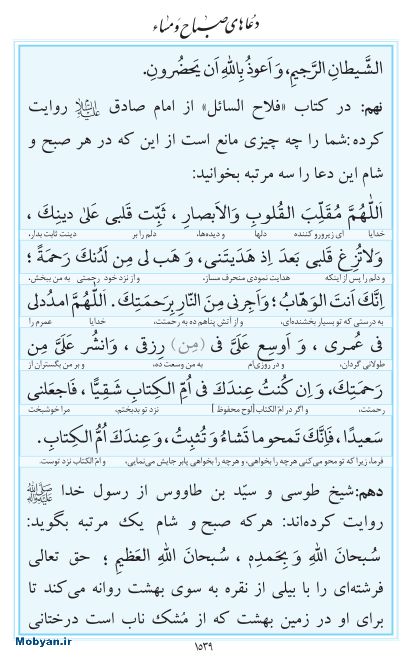 دعاهای صباح و مساء
الشَّیطانِ الرَّجیمِ، وَ اَعوذُ بِاللّٰهِ اَن یَحضُرونِ.
نهم: در کتاب «فلاح السائل» از امام صادق علیه‌السلام روایت
کرده:شما را چه چیزی مانع است از این که در هر صبح و
شام این دعا را سه مرتبه بخوانید:
اَللّٰهُمَّ مُقَلِّبَ القُلوبِ وَالاَبصارِ ، ثَبِّت قَلبی عَلیٰ دینِكَ ،
خدایا ای زیرورو کننده دلها و دیده‌ها، دلم را بر دینت ثابت بدار،
وَلاتُزِغ قَلبی بَعدَ اِذ هَدَیتَنی، وَ هَب لی مِن لَدُنكَ رَحمَةً ؛
و دلم را پس از اینکه هدایت نمودی منحرف مساز، و از نزد خود رحمتی به من ببخش،
اِنَّكَ اَنتَ الوَهّابُ؛ وَاَجِرنی مِنَ النّارِ بِرَحمَتِكَ. اَللّٰهُمَّ امدُدلی
به درستی که تو بسیار بخشنده‌ای، و از آتش پناهم ده به رحمتت، خدایا عمرم را
فی عُمری ، وَ اَوسِع عَلَیَّ فی (مِن) رِزقی ، وَانشُر عَلَیَّ مِن
طولانی گردان، و در روزی‌ام به من وسعت ده، و بر من بگستران از
رَحمَتِكَ، وَ اِن کُنتُ عِندَكَ فی اُمِّ الکِتابِ شَقِیًّا ، فَاجعَلنی
رحمتت، و اگر در امّ الکتاب [لوح محفوظ] نزد تو بدبختم، مرا خوشبخت
سَعیدًا ، فَاِنَّكَ تَمحوما تَشاءُ وَ تُثبِتُ، وَ عِندَكَ اُمُّ الکِتابِ.
فرما، زیرا که تو محو می‌کنی هرچه را بخواهی، و هرچه را بخواهی پابر جایش می‌نمایی، و امّ الکتاب نزد توست.
دهم:شیخ طوسی و سیّد بن طاووس از رسول خدا ﷺ
روایت کرده‌اند: هرکه صبح و شام یك مرتبه بگوید:
سُبحانَ اللّٰهِ وَ بِحَمدِهٖ ، سُبحانَ اللّٰهِ العَظیمِ ؛ حق تعالی
فرشته‌ای را با بیلی از نقره به سوی بهشت روانه می‌کند تا
برای او در زمین بهشت که از مُشك ناب است درختانی
۱۵۳۹
Mobyan.ir